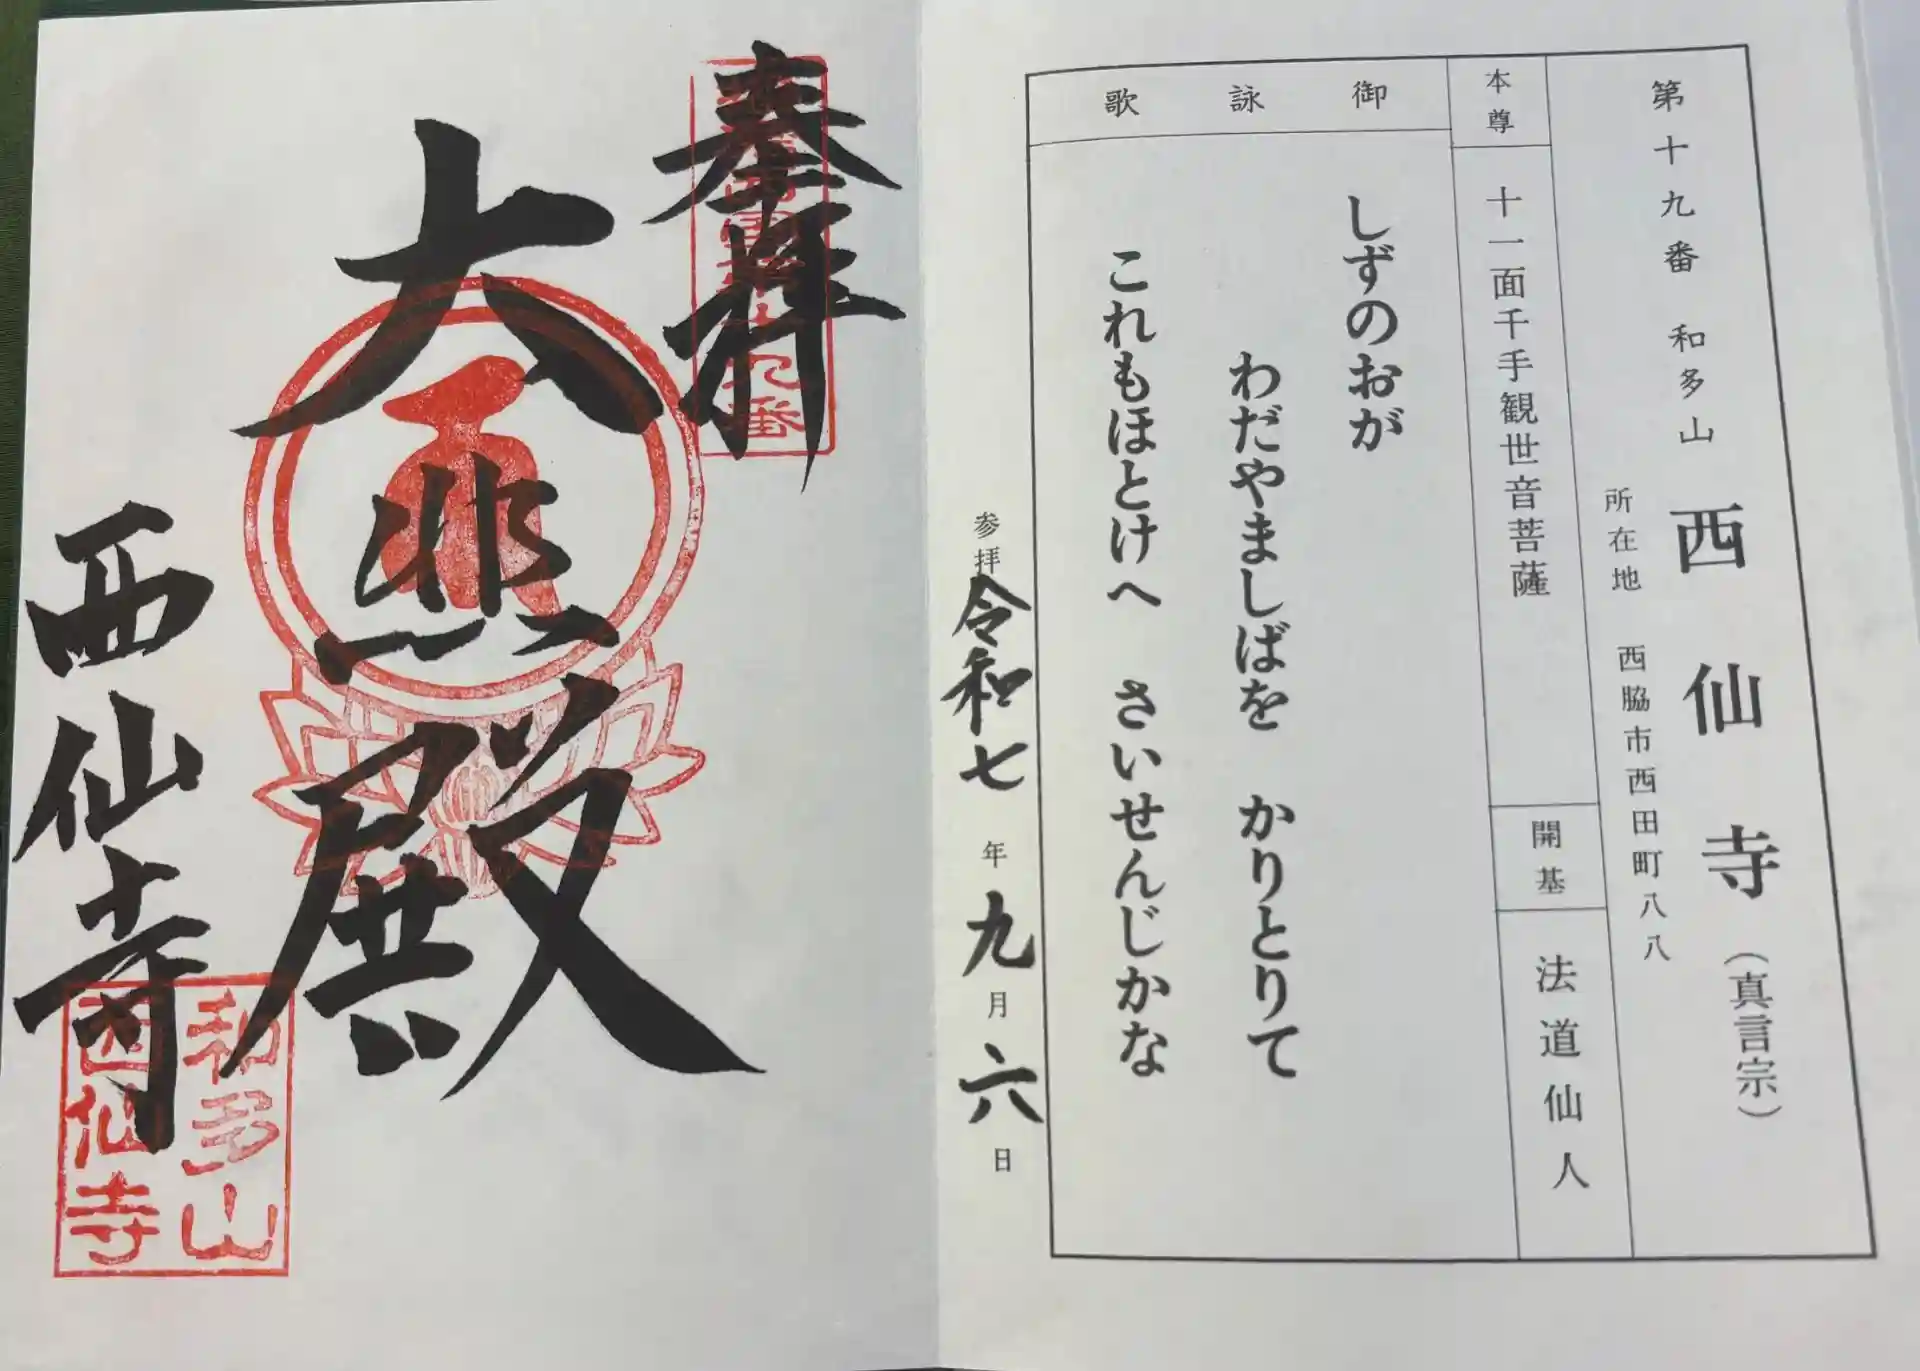 第十九番 和多山 西仙寺（真言宗）
所在地 西脇市西田町八八
本尊
十一面千手観世音菩薩
開基
法道仙人
御詠歌
しずのおが
わだやましばを かりとりて
これもほとけへ さいせんじかな
参拝 令和七年九月六日
奉拝
大悲殿
西仙寺
和多山
西仙寺